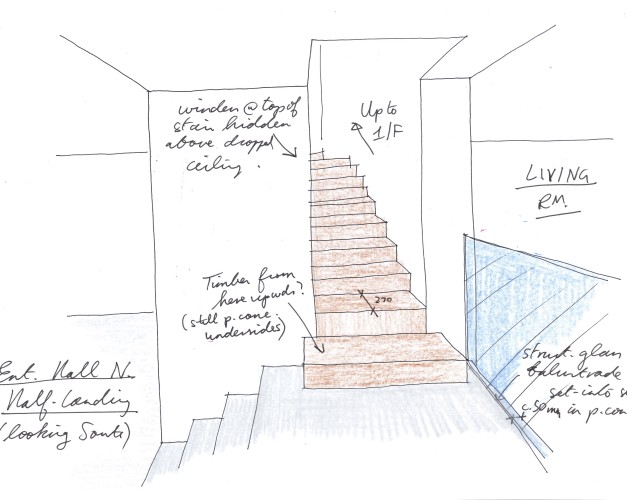 winders @ top of
stair hidden
above dropped
ceiling.
Up to
1/F
LIVING
RM.
Timber from
here upwds?
(still p. conc.
undersides)
270
Ent. Hall
Half-Landing
(looking South)
struct. glass
balustrade
set-into
c. 50mm in p. con